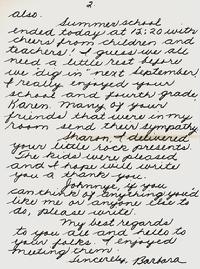 2
also.
Summer school
ended today at 12:20 with
cheers from children and
teachers! I guess we all
need a little rest before
we "dig in" next September.
I really enjoyed your
school and fourth grade,
Karen. Many of your
friends that were in my
room send their sympathy.
Sharon, I delivered
your little rock presents.
The kids were pleased
and I hope will write
you a thank you.
Johnnye, if you
can think of anything you'd
like me or anyone else to
do, please write.
My best regards
to you all and hello to
your folks. I enjoyed
meeting them.
Sincerely, Barbara